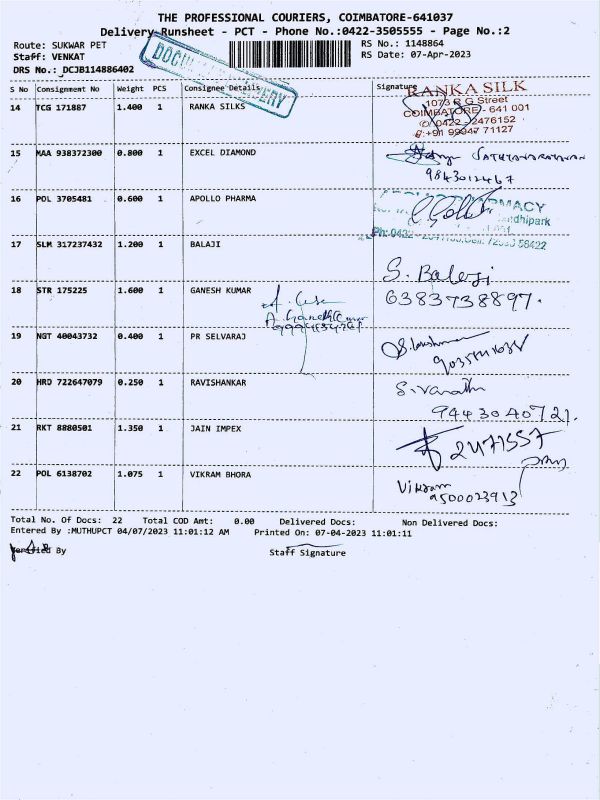 THE PROFESSIONAL COURIERS, COIMBATORE-641037
Delivery Runsheet - PCT - Phone No.:0422-3505555 - Page No.:2
Route: SUKWAR PET RS No.: 1148864
Staff: VENKAT RS Date: 07-Apr-2023
DRS No.: DCJB114886402
S No Consignment No Weight PCS Consignee Details Signature
RANKA SILK
14 TCG 171887 1.400 1 RANKA SILKS
1073 R G Street
COIMBATORE - 641 001
0422 - 2476152
+91 99947 71127
15 MAA 938372300 0.800 1 EXCEL DIAMOND
9843012467
16 POL 3705481 0.600 1 APOLLO PHARMA
17 SLM 317237432 1.200 1 BALAJI
S. Balaji
18 STR 175225 1.600 1 GANESH KUMAR
6383738897.
19 NGT 40043732 0.400 1 PR SELVARAJ
20 HRD 722647079 0.250 1 RAVISHANKAR
9443040721.
21 RKT 8880501 1.350 1 JAIN IMPEX
2471557
22 POL 6138702 1.075 1 VIKRAM BHORA
Vikram
9500023913
Total No. Of Docs: 22 Total COD Amt: 0.00 Delivered Docs: Non Delivered Docs:
Entered By :MUTHUPCT 04/07/2023 11:01:12 AM Printed On: 07-04-2023 11:01:11
Verified By Staff Signature